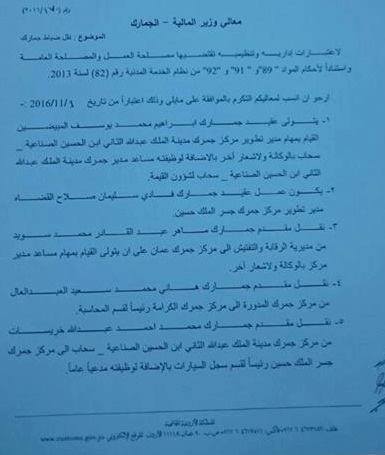 معالي وزير المالية – الجمارك
الموضوع : نقل ضباط جمارك
لاعتبارات إدارية وتنظيمية تقتضيها مصلحة العمل والمصلحة العامة
واستناداً لأحكام المواد "89" و "91" و "92" من نظام الخدمة المدنية رقم (82) لسنة 2013.
ارجو ان انسب لمعاليكم التكرم بالموافقة على مايلي وذلك اعتباراً من تاريخ 2016/11/ :-
١- يتولى عقيد جمارك ابراهيم محمد يوسف المبيضين
القيام بمهام مدير تطوير مركز جمرك مدينة الملك عبدالله الثاني ابن الحسين الصناعية _
سحاب بالوكالة ولاشعار آخر بالاضافة لوظيفته مساعد مدير جمرك مدينة الملك عبدالله
الثاني ابن الحسين الصناعية _ سحاب لشؤون القيمة.
٢- يكون عمل عقيد جمارك فادي سليمان صلاح القضاه
مدير تطوير مركز جمرك جسر الملك حسين.
٣- نقل مقدم جمارك ماهر عبد القادر محمد سويد
من مديرية الرقابة والتفتيش الى مركز جمرك عمان على ان يتولى القيام بمهام مساعد مدير
مركز بالوكالة ولاشعار آخر.
٤- نقل مقدم جمارك هاني محمد سعيد العبدالعال
من مركز جمرك المدورة الى مركز جمرك الكرامة رئيساً لقسم المحاسبة.
٥- نقل مقدم جمارك محمد احمد عبدالله خريسات
من مركز جمرك مدينة الملك عبدالله الثاني ابن الحسين الصناعية _ سحاب الى مركز جمرك
جسر الملك حسين رئيساً لقسم سجل السيارات بالإضافة لوظيفته مدعياً عاماً.
المملكة الأردنية الهاشمية